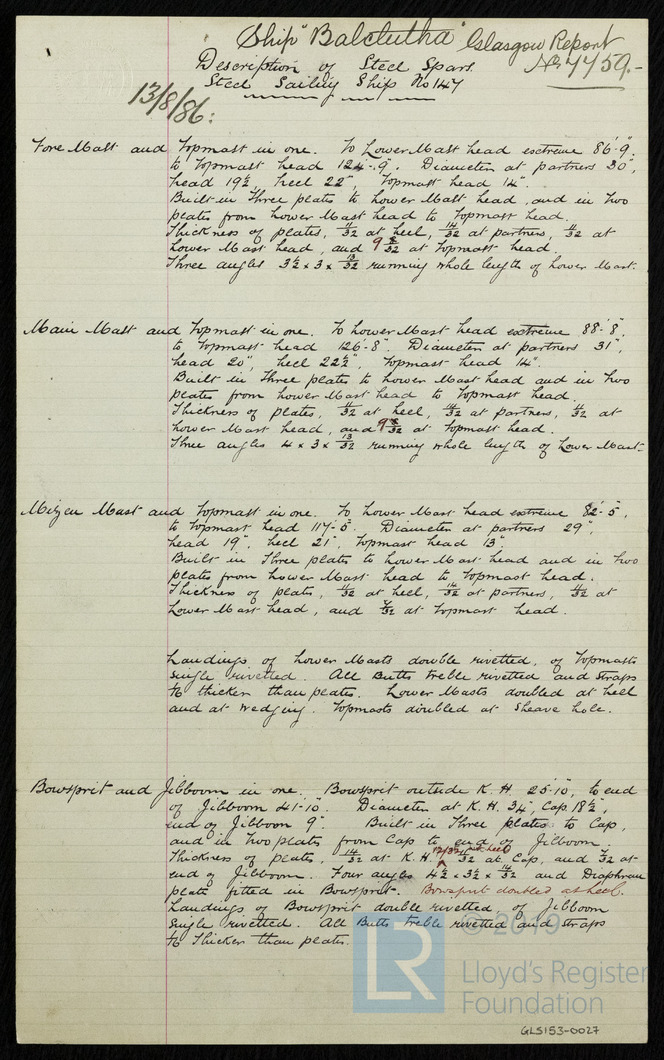 Ship "Balclutha" Glasgow Report
No 7759.-
Description of Steel Spars.
Steel Sailing Ship No 147
13/8/86:
Fore Mast and Topmast in one. To Lower Mast head extreme 86'-9"
to Topmast head 124'-9". Diameter at partners 30",
head 19½ heel 22", Topmast head 14".
Built in Three plates to lower Mast head, and in Two
plates from Lower Mast head to Topmast head.
Thickness of plates, 11/32 at heel, 14/32 at partners, 11/32 at
Lower Mast head, and 9/32 at Topmast head.
Three angles 3½ x 3 x 13/32 running whole length of lower Mast.
Main Mast and Topmast in one. To Lower Mast head extreme 88'-8"
to Topmast head 126'-8". Diameter at partners 31",
head 20", heel 22½", Topmast head 14".
Built in Three plates to lower Mast head and in Two
plates from Lower Mast head to Topmast head.
Thickness of plates, 11/32 at heel, 14/32 at partners, 11/32 at
Lower Mast head, and 9/32 at Topmast head.
Three angles 4 x 3 x 13/32 running whole length of Lower Mast
Mizen Mast and Topmast in one. To Lower Mast head extreme 82'-5",
to Topmast head 117'-5". Diameter at partners 29",
head 19", heel 21", Topmast head 13"
Built in Three plates to Lower Mast head and in Two
plates from Lower Mast head to Topmast head.
Thickness of plates, 11/32 at heel, 14/32 at partners, 11/32 at
Lower Mast head, and at Topmast head.
Landings of Lower Masts double rivetted, of Topmasts
single rivetted. All Butts treble rivetted and Straps
1/16 thicker than plates. Lower Masts doubled at heel
and at Wedging. Topmasts doubled at Sheave hole.
Bowsprit and Jibboom in one. Bowsprit outside K.H. 25'-10", to end
of Jibboom 41'-10". Diameter at K.H. 34", Cap 18½",
end of Jibboom 9". Built in Three plates to Cap,
and in Two plates from Cap to end of Jibboom
Thickness of plates, 14/32 at K.H. 12/32 at heel 11/32 at Cap, and 7/32 at
end of Jibboom. Four angles 4½ x 3½ x 14/32 and Diaphram
plate fitted in Bowsprit. Bowsprit doubled at heel.
Landings of Bowsprit double rivetted, of Jibboom
Single rivetted. All Butts treble rivetted and straps
1/16 Thicker than plates.
LR © 2019
Lloyd's Register
Foundation
GLS153-0027